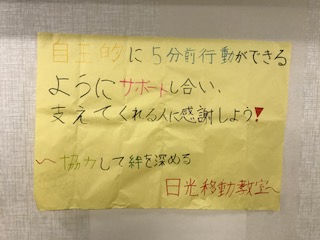 自主的に5分前行動ができる
ようにサポートし合い、
支えてくれる人に感謝しよう!
〜協力して絆を深める
日光移動教室〜